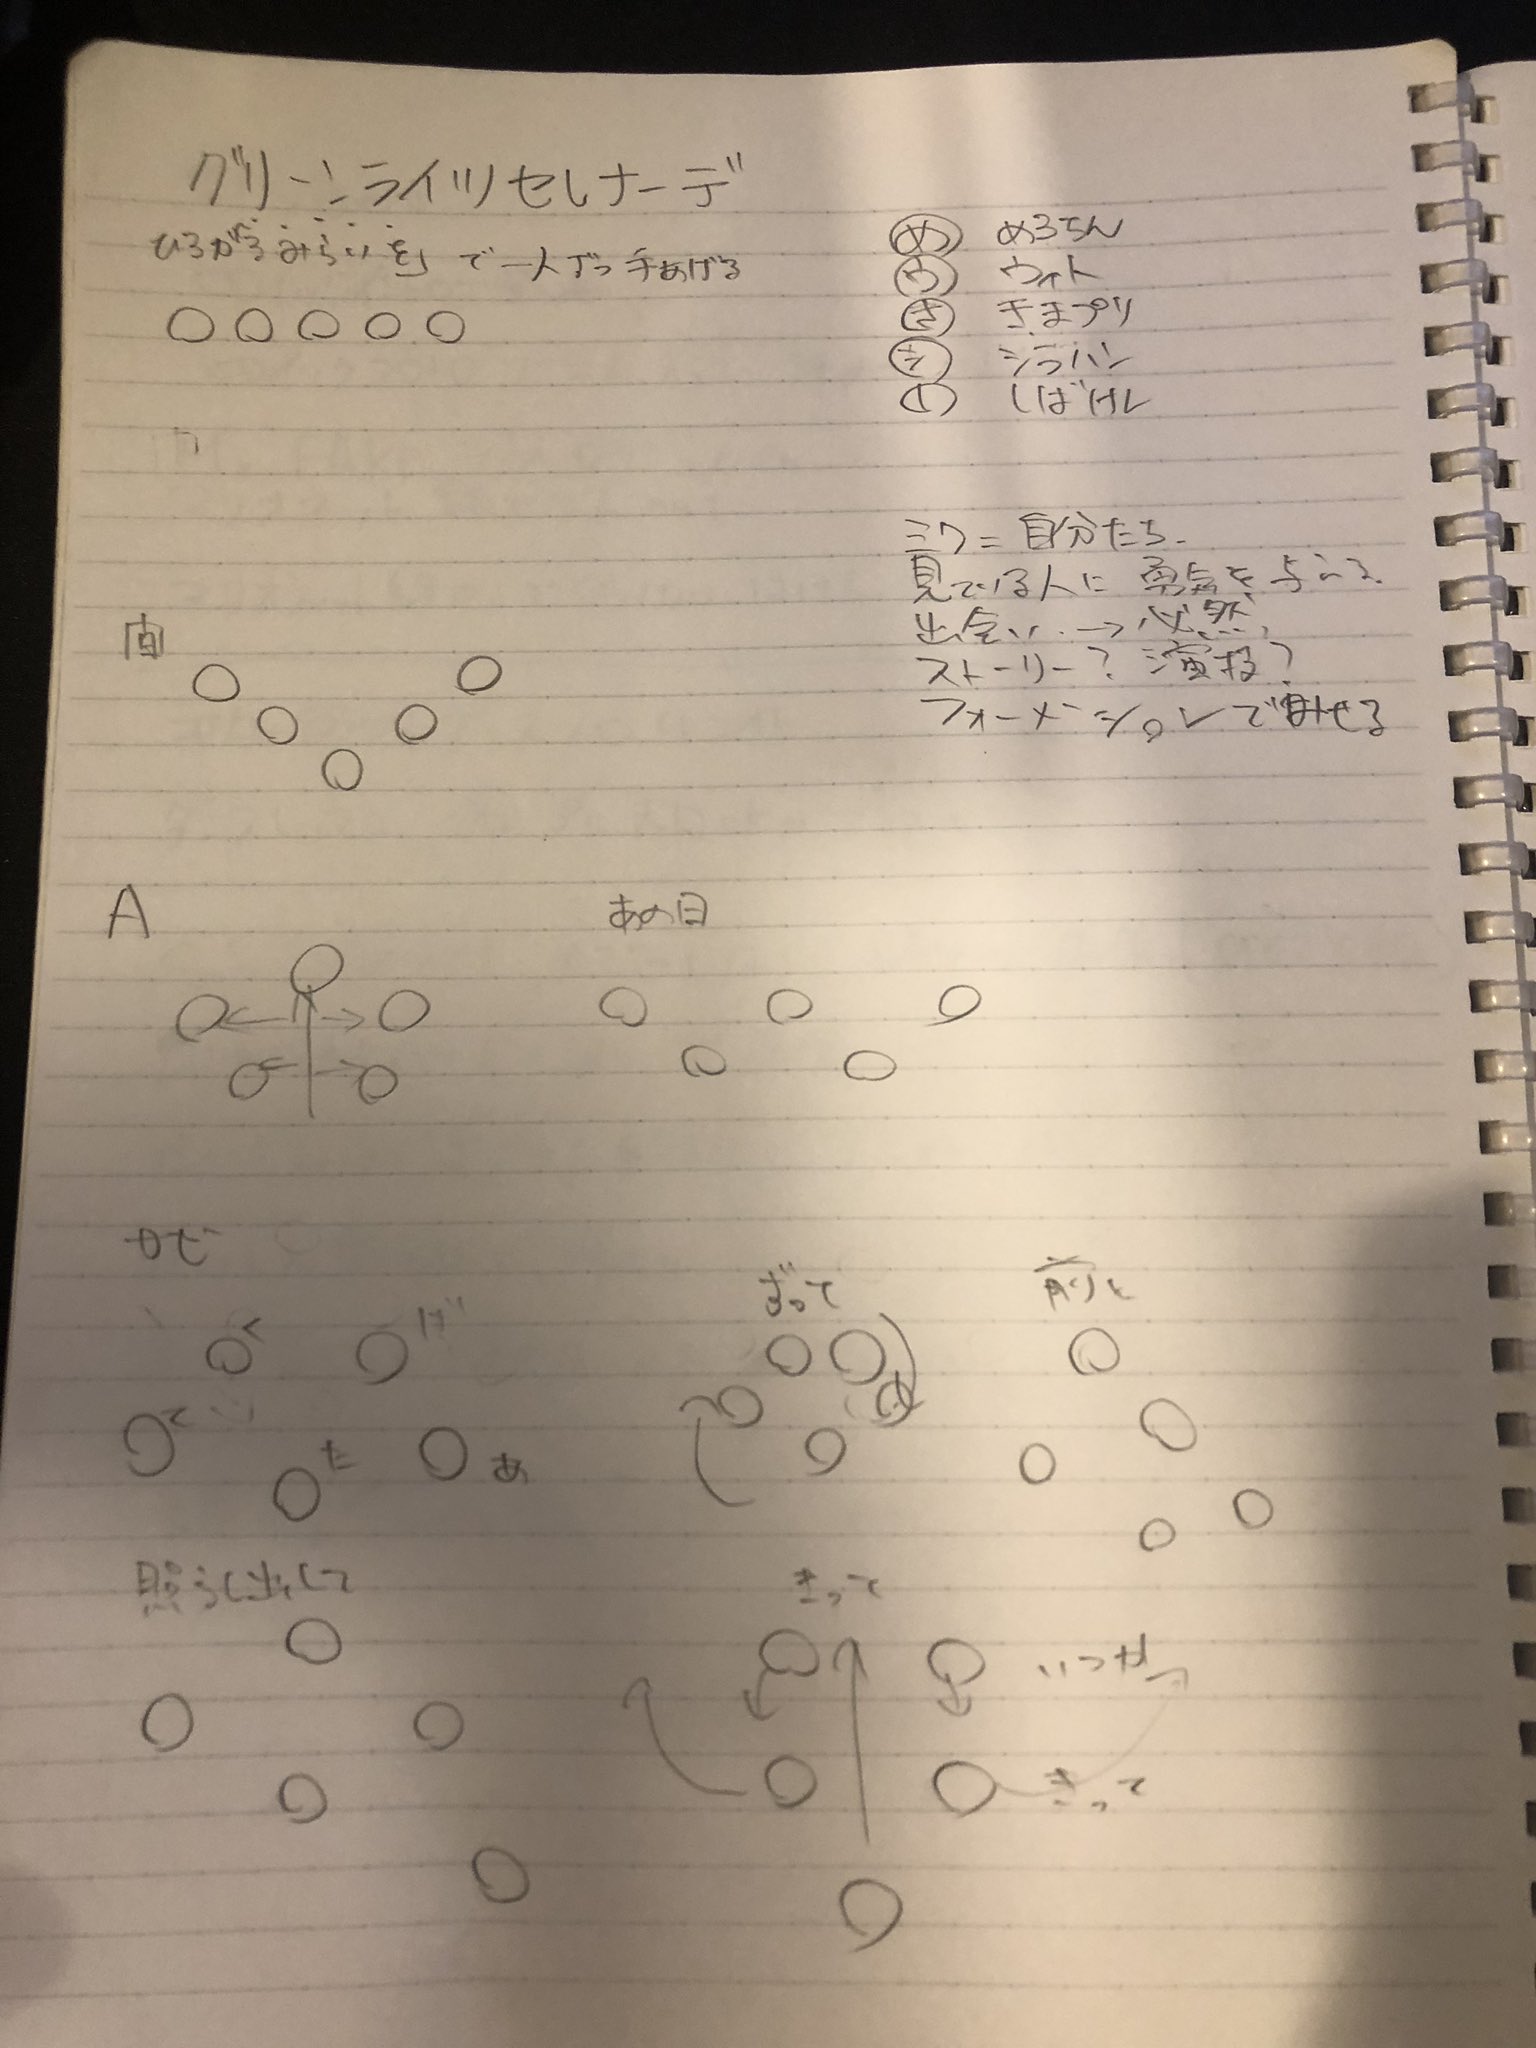 グリーンライツセレナーデ
ひろがるみらいを」で一人ずつ手あげる
め めろちん
ウ ウォト
き きまプリ
シ シラハン
し しばけん
ミク=自分たち
見ている人に勇気を与える
出会い→必然
ストーリー?演技?
フォーメーションで見せる
間
A
あの日
サビ
く げ
て
た あ
ぎって
前と
照らし出して
きって
いつか
きって